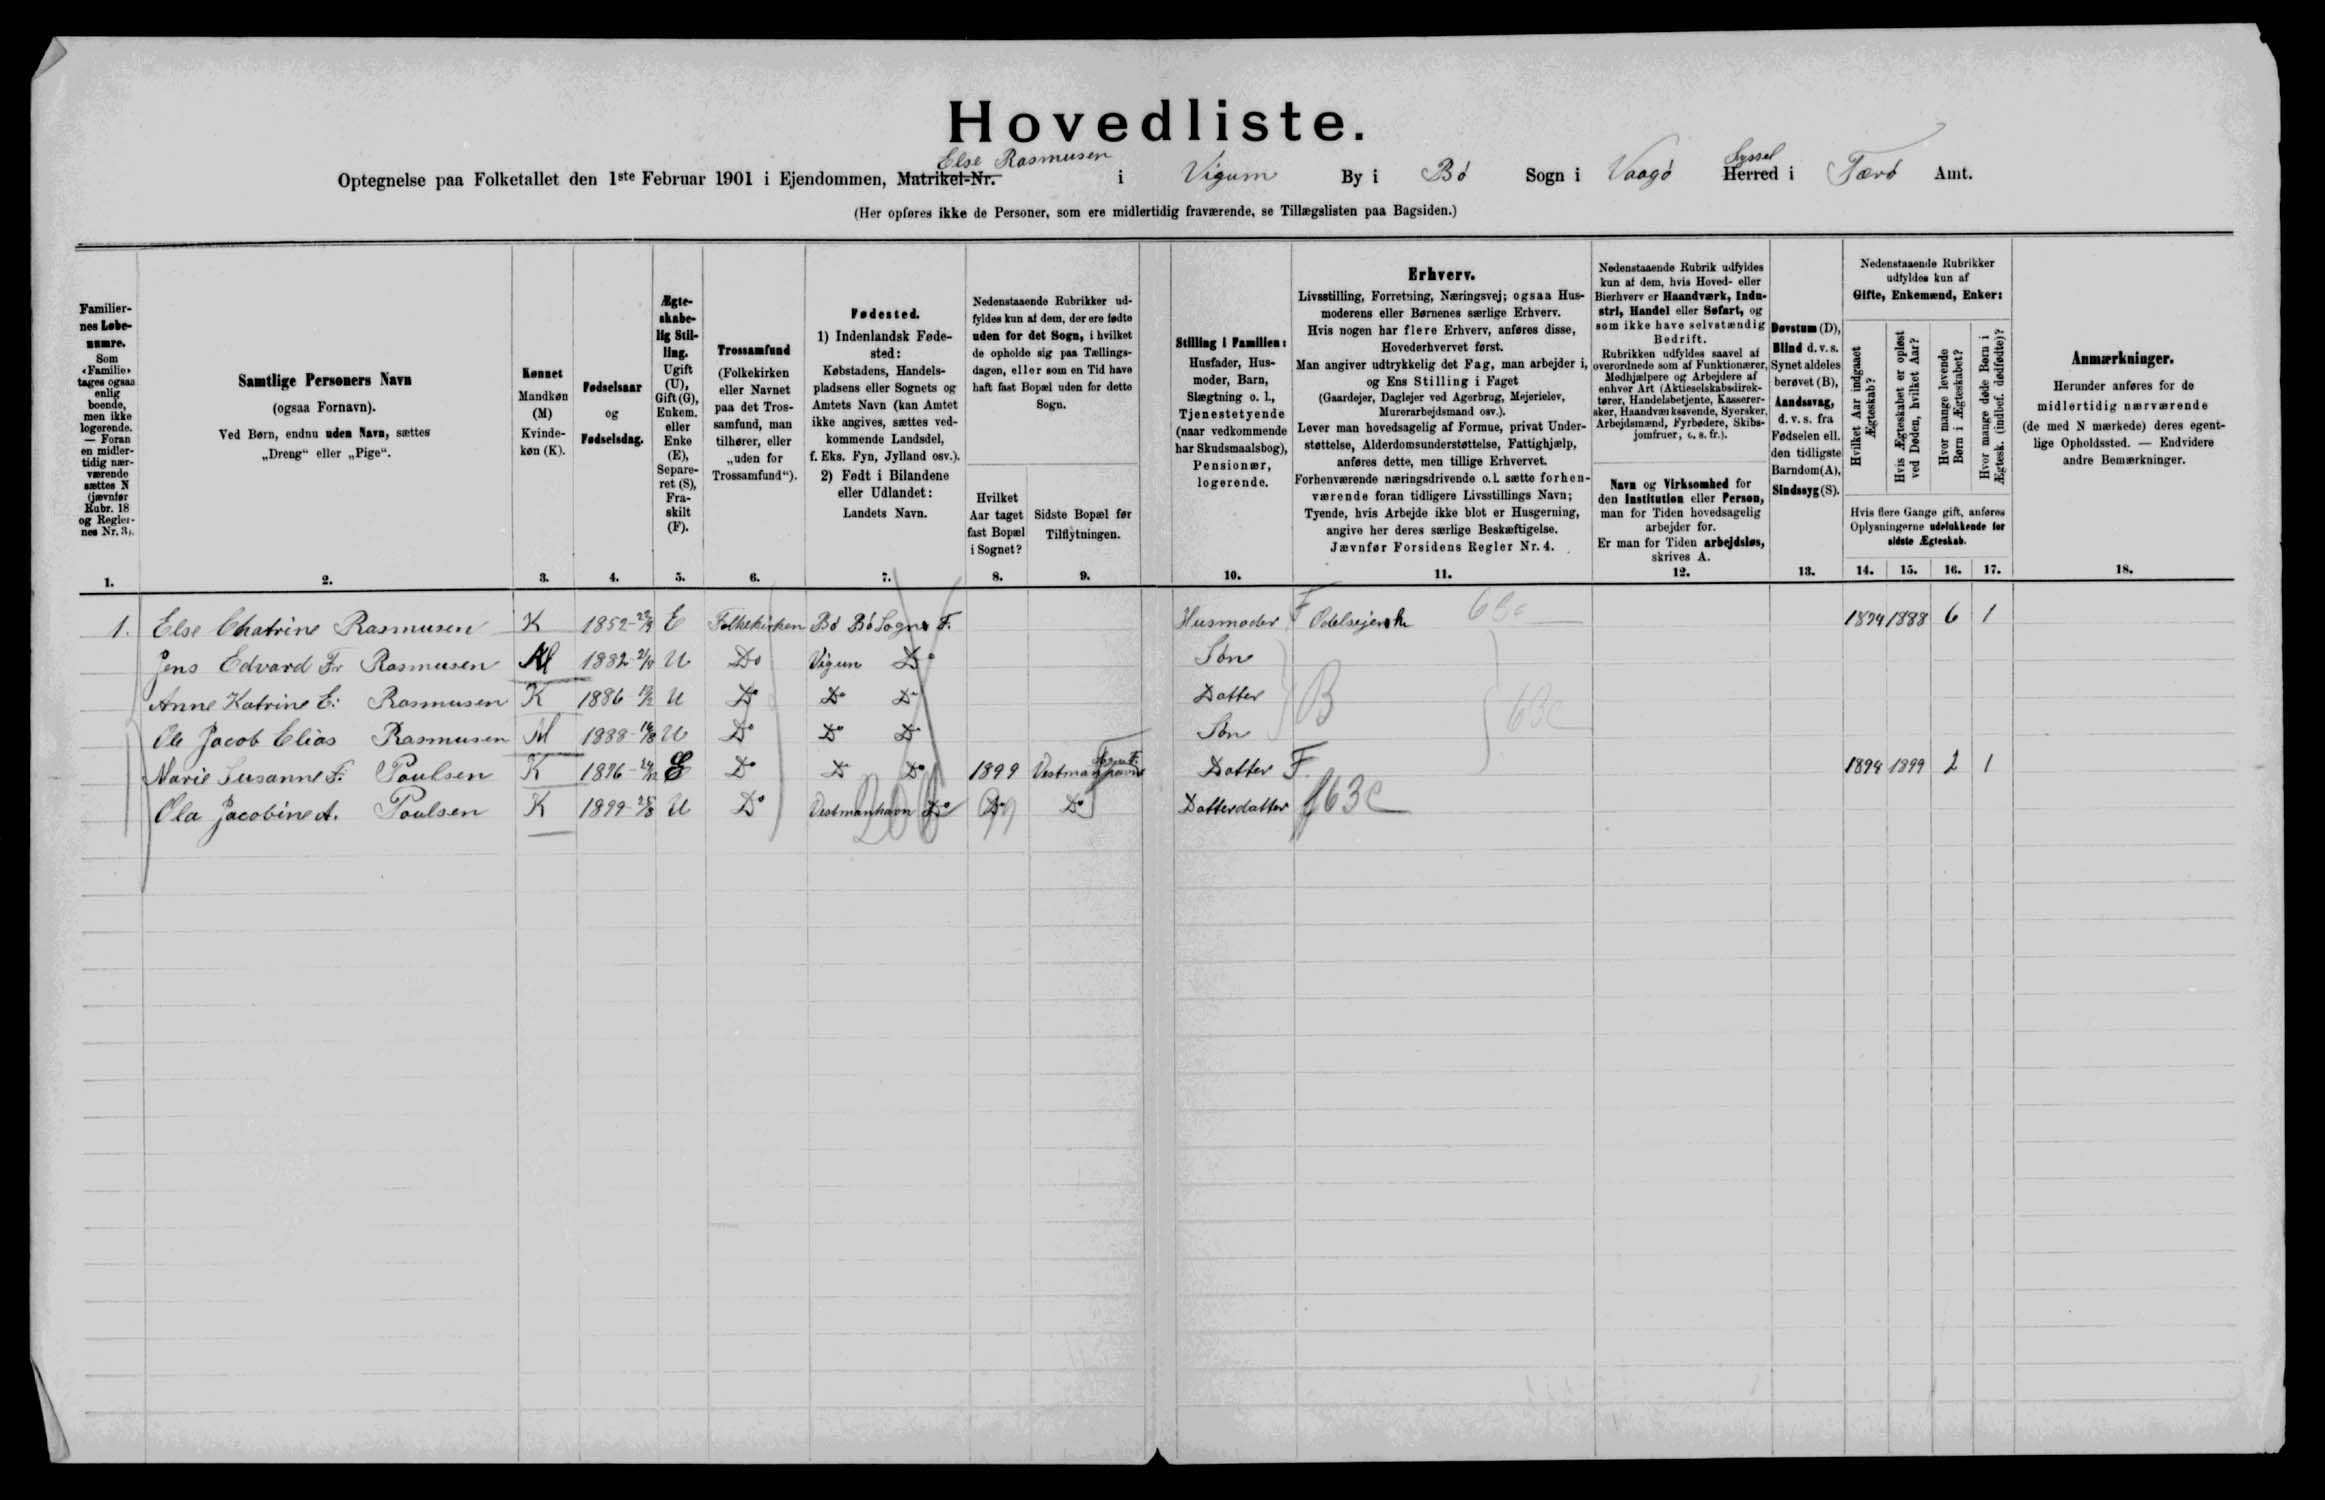 Hovedliste.
Optegnelse paa Folketallet den 1ste Februar 1901 i Ejendommen, Matrikel-Nr. Else Rasmusen i Vigum By i Bø Sogn i Vaagø Herred Syssel i Færø Amt.
(Her opføres ikke de Personer, som ere midlertidig fraværende, se Tillægslisten paa Bagsiden.)
Familiernes Løbenumre.
Som «Familie» tages ogsaa enlig boende, men ikke logerende. — Foran en midlertidig nærværende sættes N (jævnfør Rubr. 18 og Reglernes Nr. 3).
1.
Samtlige Personers Navn
(ogsaa Fornavn).
Ved Børn, endnu uden Navn, sættes
„Dreng“ eller „Pige“.
2.
Kønnet
Mandkøn (M)
Kvindekøn (K).
3.
Fødselsaar
og
Fødselsdag.
4.
Ægteskabelig Stilling.
Ugift (U), Gift (G), Enkem. eller Enke (E), Separeret (S), Fraskilt (F).
5.
Trossamfund
(Folkekirken eller Navnet paa det Trossamfund, man tilhører, eller „uden for Trossamfund“).
6.
Fødested.
1) Indenlandsk Fødested:
Købstadens, Handelspladsens eller Sognets og Amtets Navn (kan Amtet ikke angives, sættes vedkommende Landsdel, f. Eks. Fyn, Jylland osv.).
2) Født i Bilandene eller Udlandet:
Landets Navn.
7.
Nedenstaaende Rubrikker udfyldes kun af dem, der ere fødte uden for det Sogn, i hvilket de opholde sig paa Tællingsdagen, eller som en Tid have haft fast Bopæl uden for dette Sogn.
Hvilket Aar taget fast Bopæl i Sognet?
8.
Sidste Bopæl før Tilflytningen.
9.
Stilling i Familien:
Husfader, Husmoder, Barn, Slægtning o. l., Tjenestetyende (naar vedkommende har Skudsmaalsbog), Pensionær, logerende.
10.
Erhverv.
Livsstilling, Forretning, Næringsvej; ogsaa Husmoderens eller Børnenes særlige Erhverv.
Hvis nogen har flere Erhverv, anføres disse, Hovederhvervet først.
Man angiver udtrykkelig det Fag, man arbejder i, og Ens Stilling i Faget
(Gaardejer, Daglejer ved Agerbrug, Mejerielev, Murerarbejdsmand osv.).
Lever man hovedsagelig af Formue, privat Understøttelse, Alderdomsunderstøttelse, Fattighjælp, anføres dette, men tillige Erhvervet.
Forhenværende næringsdrivende o. l. sætte forhenværende foran tidligere Livsstillings Navn;
Tyende, hvis Arbejde ikke blot er Husgerning, angive her deres særlige Beskæftigelse.
Jævnfør Forsidens Regler Nr. 4.
11.
Nedenstaaende Rubrik udfyldes kun af dem, hvis Hoved- eller Bierhverv er Haandværk, Industri, Handel eller Søfart, og som ikke have selvstændig Bedrift.
Rubrikken udfyldes saavel af overordnede som af Funktionærer, Medhjælpere og Arbejdere af enhver Art (Aktieselskabsdirektører, Handelsbetjente, Kasserersker, Haandværkssvende, Syersker, Arbejdsmænd, Fyrbødere, Skibsjomfruer, o. s. fr.).
Navn og Virksomhed for den Institution eller Person, man for Tiden hovedsagelig arbejder for.
Er man for Tiden arbejdsløs, skrives A.
12.
Døvstum (D), Blind d. v. s. Synet aldeles berøvet (B), Aandssvag, d. v. s. fra Fødselen ell. den tidligste Barndom (A), Sindssyg (S).
13.
Nedenstaaende Rubrikker udfyldes kun af
Gifte, Enkemænd, Enker:
Hvilket Aar indgaaet Ægteskab?
Hvis Ægteskabet er opløst ved Døden, hvilket Aar?
Hvor mange levende Børn i Ægteskabet?
Hvor mange døde Børn i Ægtesk. (indbef. dødfødte)?
Hvis flere Gange gift, anføres Oplysningerne udelukkende for sidste Ægteskab.
14. 15. 16. 17.
Anmærkninger.
Herunder anføres for de midlertidig nærværende (de med N mærkede) deres egentlige Opholdssted. — Endvidere andre Bemærkninger.
18.
1. Else Chatrine Rasmusen K 1852 E Folkekirken Bø Bø Sogn F. Husmoder F Odelsejersk 63c 1874 1888 6 1
Jens Edvard Fr Rasmusen M 1882 U Do Vigum Do Søn
Anne Katrine E: Rasmusen K 1886 U Do Do Do Datter B 63c
Ole Jacob Elias Rasmusen M 1888 U Do Do Do Søn
Marie Susanne F: Poulsen K 1876 E Do Do Do 1899 Vestmanhavn Sogn F. Datter F. 1894 1899 2 1
Ola Jacobine A. Poulsen K 1899 U Do Vestmanhavn Do Do Do Datterdatter f63c